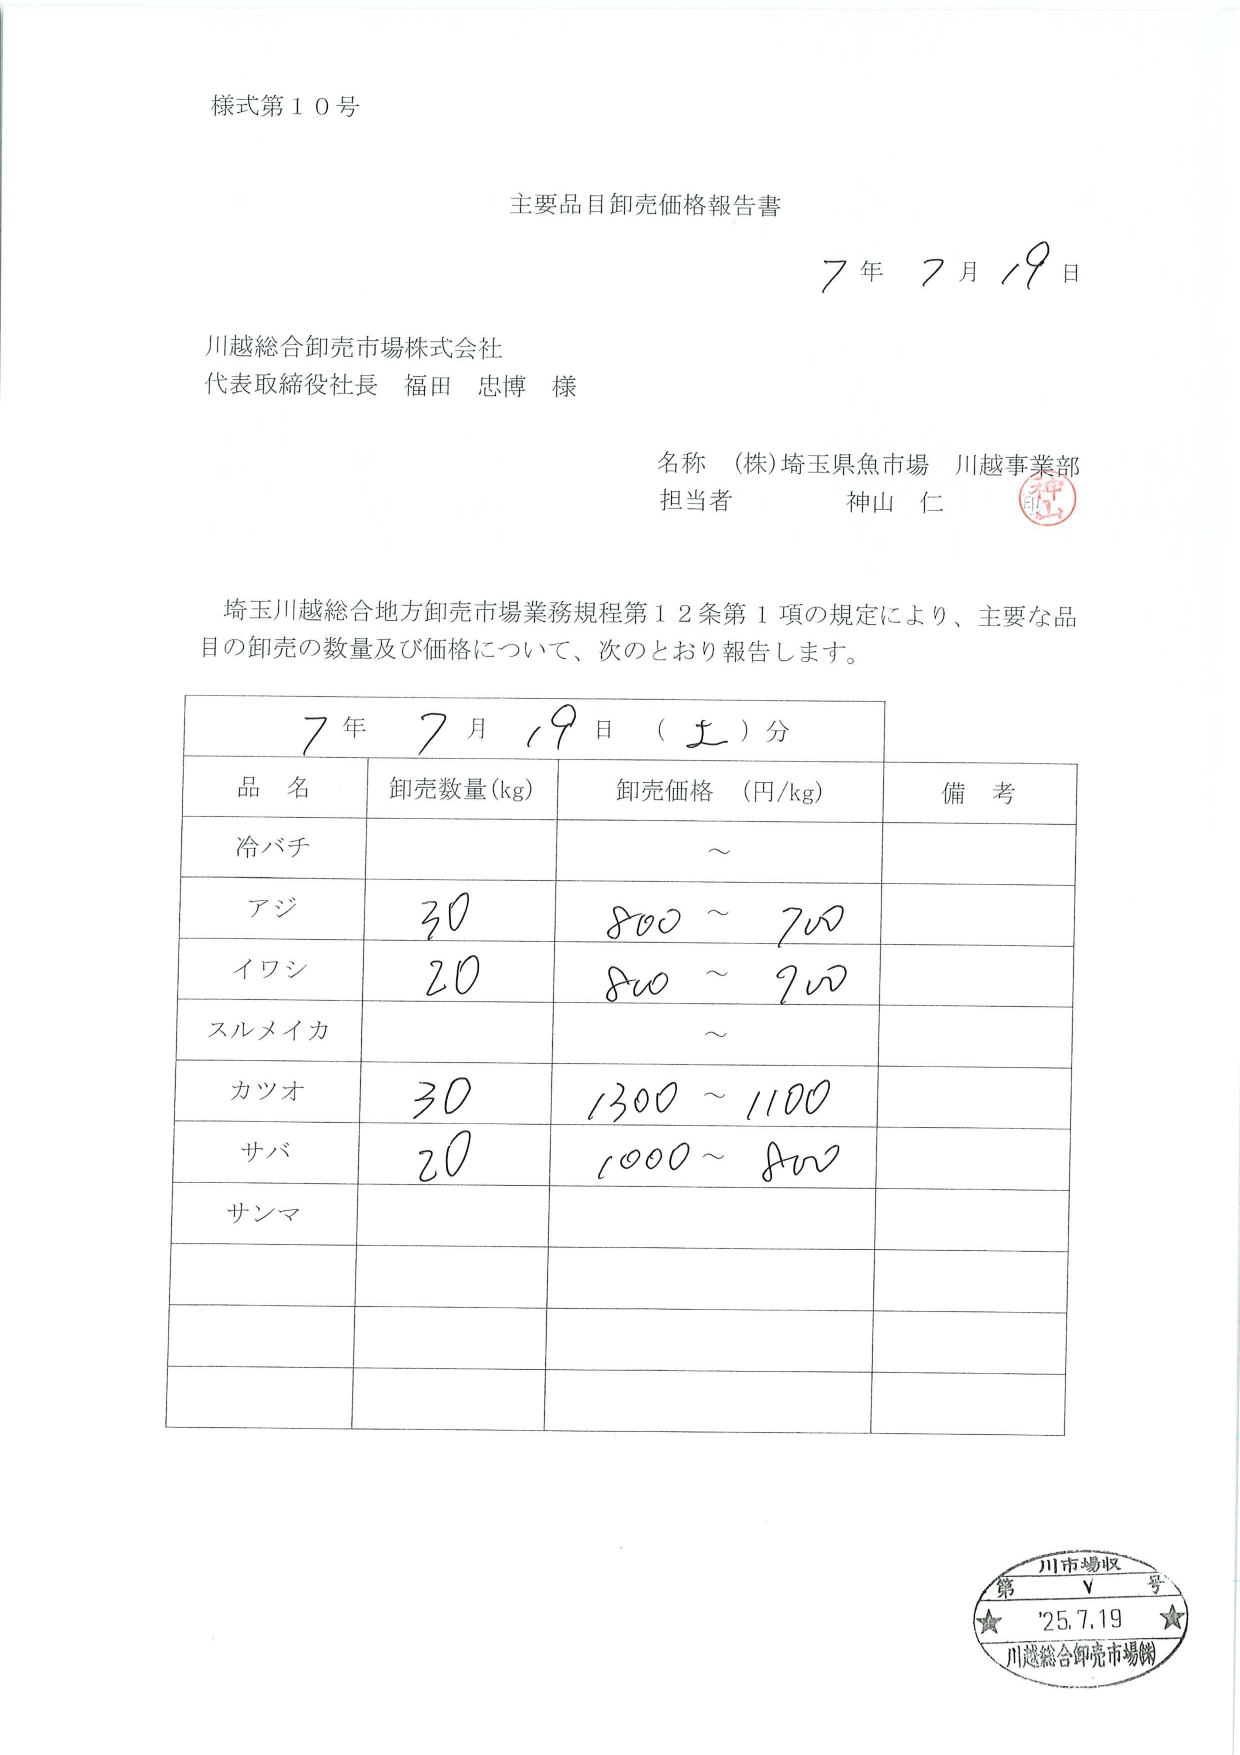 様式第１０号
主要品目卸売価格報告書
7年 7月 19日
川越総合卸売市場株式会社
代表取締役社長 福田 忠博 様
名称 (株)埼玉県魚市場 川越事業部
担当者 神山 仁 印 神山
埼玉川越総合地方卸売市場業務規程第１２条第１項の規定により、主要な品
目の卸売の数量及び価格について、次のとおり報告します。
7年 7月 19日 (土)分
品 名 卸売数量(kg) 卸売価格 (円/kg) 備 考
冷バチ ～
アジ 30 800 ～ 700
イワシ 20 800 ～ 900
スルメイカ ～
カツオ 30 1300 ～ 1100
サバ 20 1000 ～ 800
サンマ
川市場収
第 V 号
★ '25.7.19 ★
川越総合卸売市場㈱